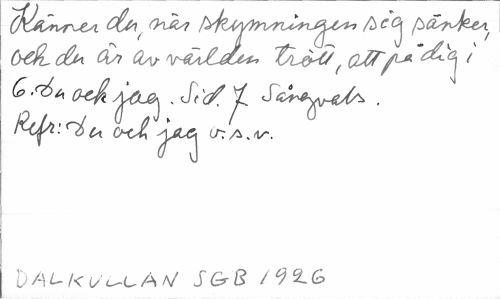 Känner du, när skymningen sig sänker,
och du är av världen trött, att på dig i
6. Du och jag. Sid. 7 Sångvals.
Refr: Du och jag v.s.v.
DALKULLAN SGB 1926